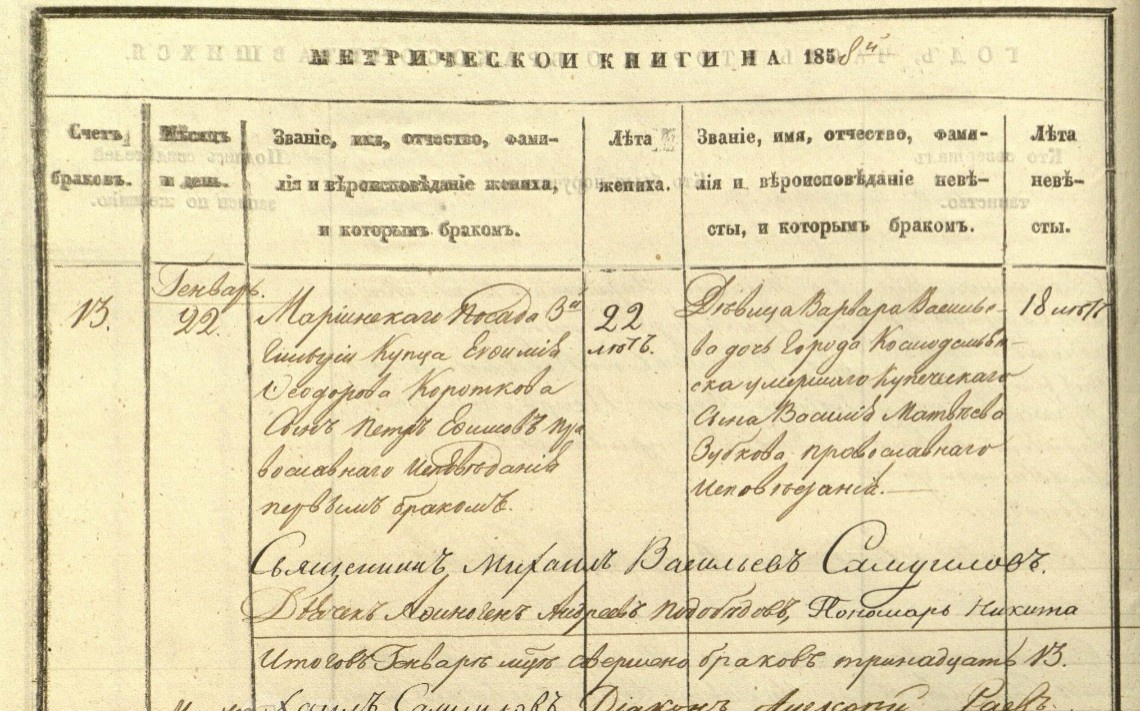 МЕТРИЧЕСКОЙ КНИГИ НА 1858й
Счетъ
браковъ.
Мѣсяцъ
и день.
Званіе, имя, отчество, фами-
лія и вѣроисповѣданіе жениха,
и которымъ бракомъ.
Лѣта
жениха.
Званіе, имя, отчество, фами-
лія и вѣроисповѣданіе невѣ-
сты, и которымъ бракомъ.
Лѣта
невѣ-
сты.
13.
Генварь.
22.
Маріинскаго Посада 3й
Гильдіи Купца Евѳимія
Ѳеодорова Короткова
Сынъ Петръ Евѳимовъ пра
вославнаго Исповѣданія
первымъ бракомъ.
22
лѣтъ.
Дѣвица Варвара Василье-
ва дочь Города Космодемьян-
ска умершаго Купеческаго
Сына Василія Матвѣева
Зубкова православнаго
Исповѣданія.
18 лѣтъ
Священникъ Михаилъ Васильевъ Самуиловъ.
Дьячекъ Аѳиногенъ Андреевъ Подобѣдовъ, Пономарь Никита
Итого въ Генварѣ мцѣ свершено браковъ тринадцать 13.
Самуиловъ Діаконъ Алексѣй Раевъ